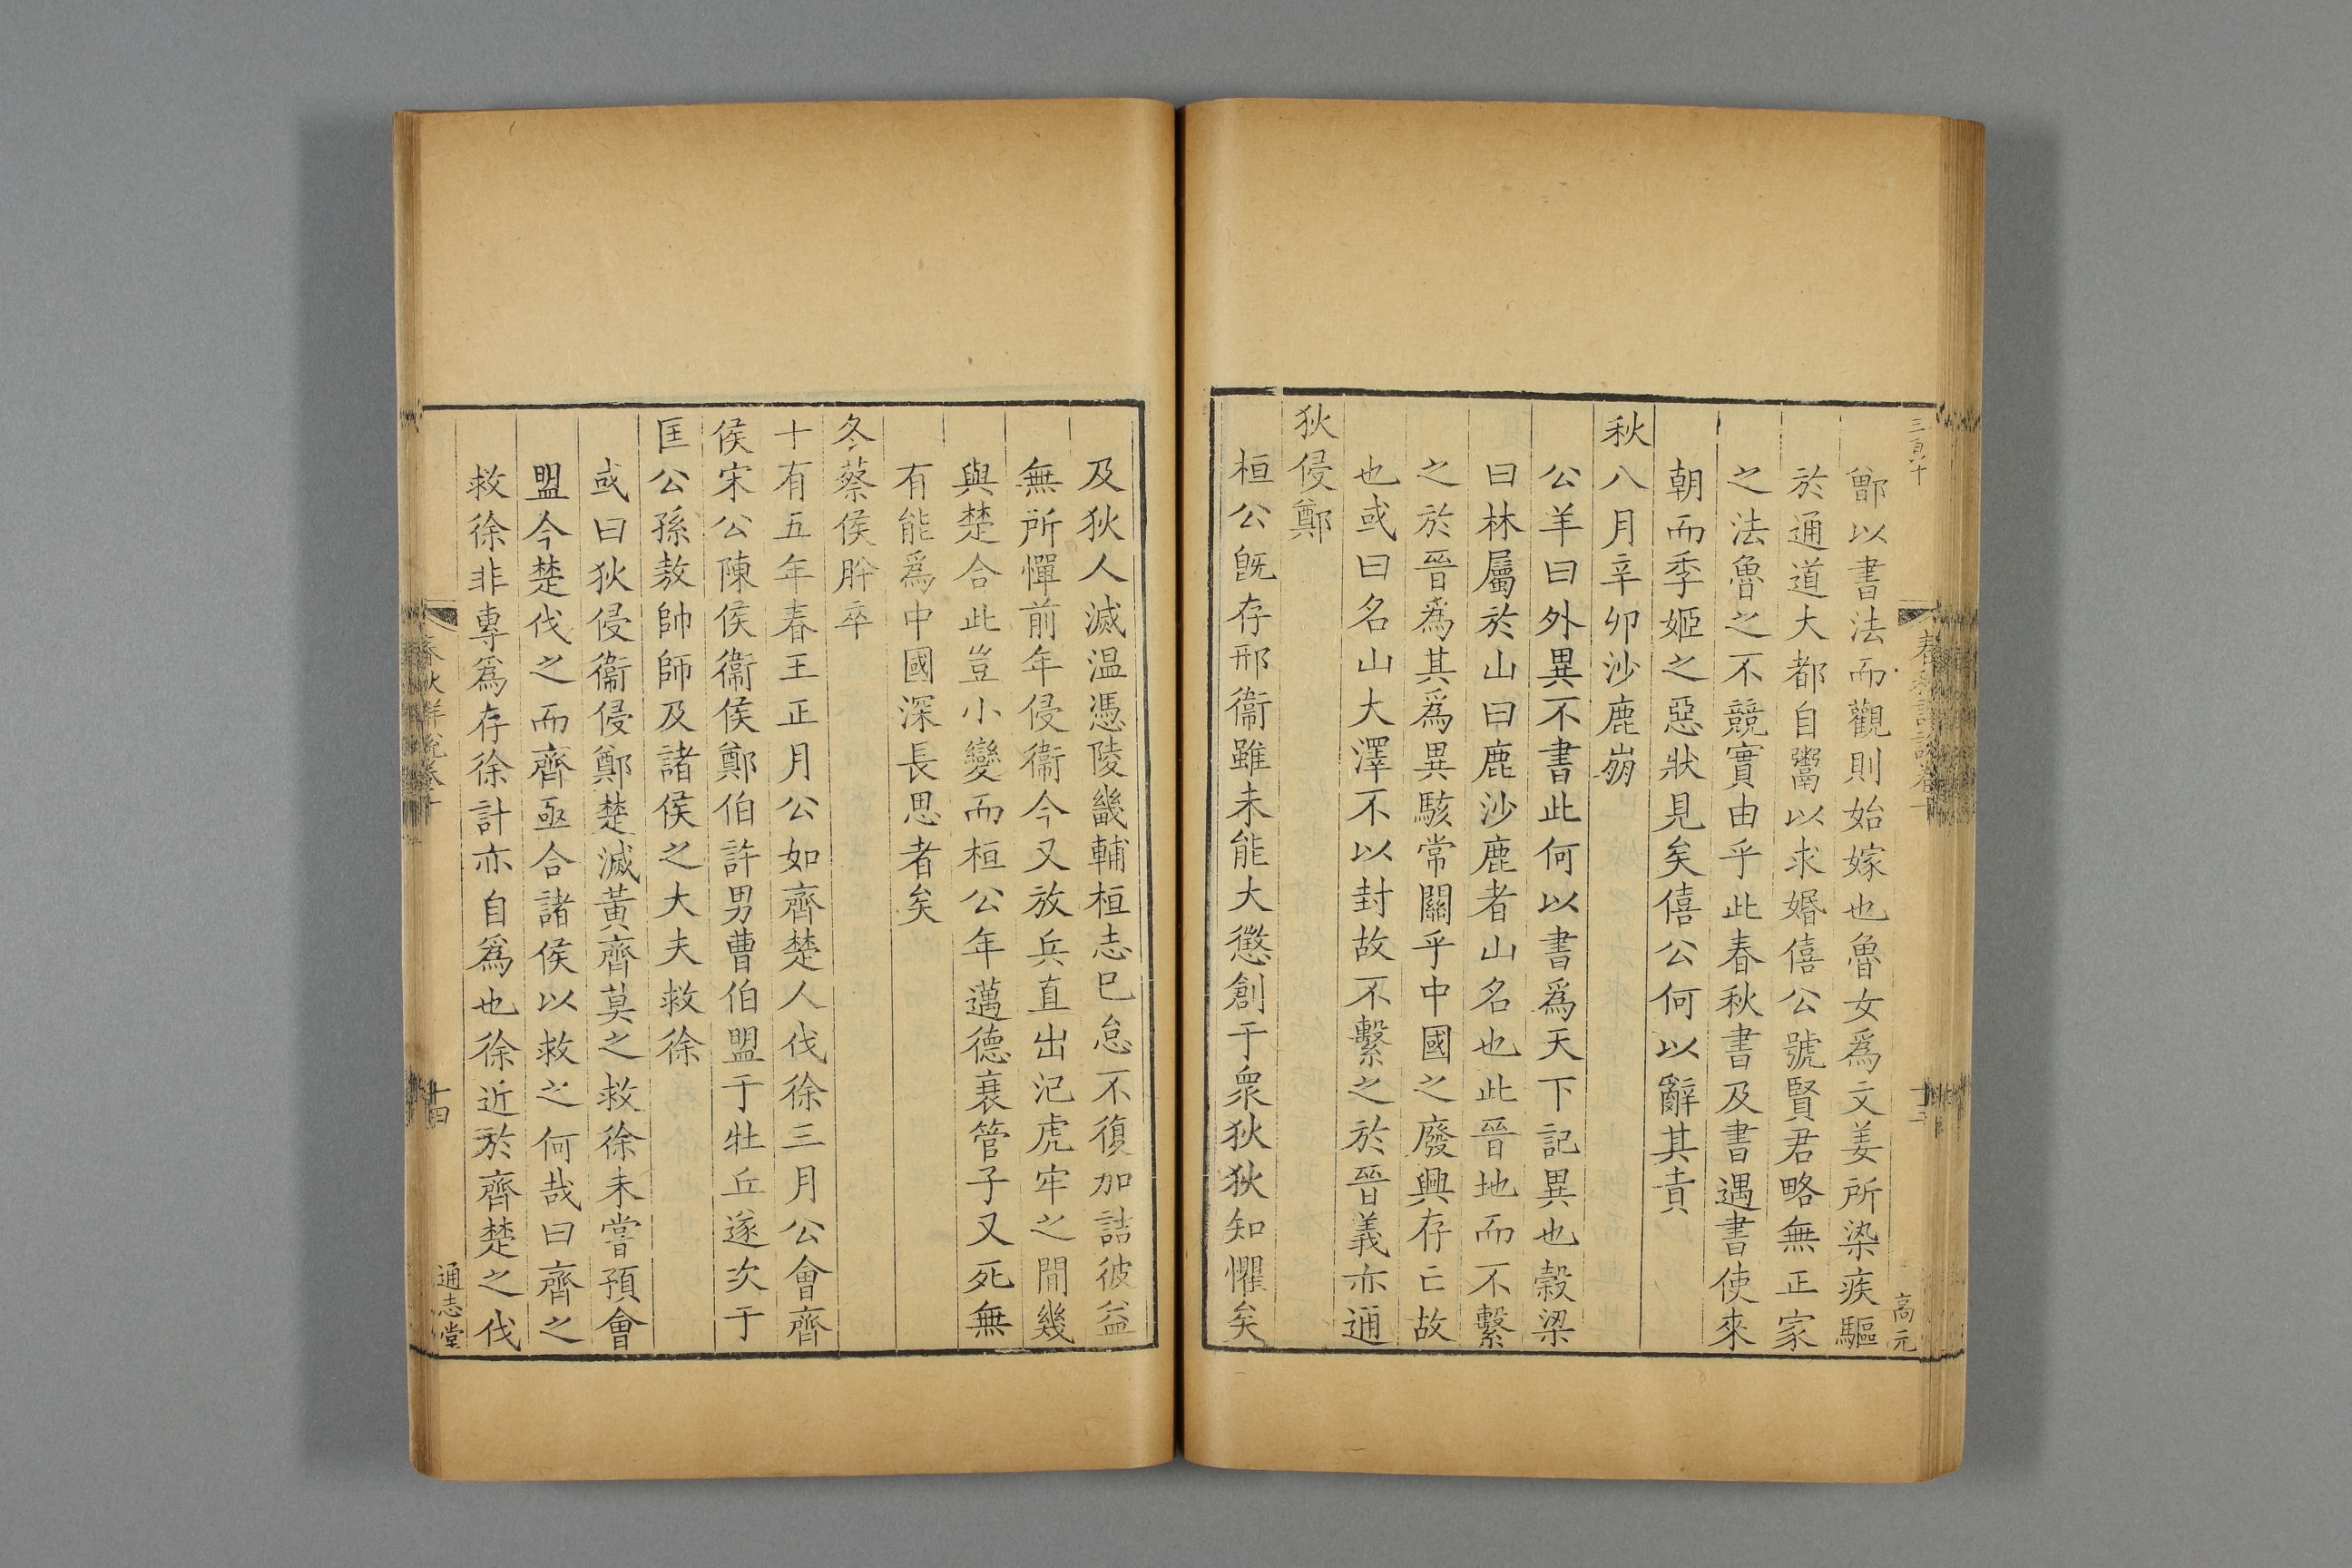 鄫以書法而觀則始嫁也魯女爲文姜所染疾驅
於通道大都自鬻以求婚僖公號賢君略無正家
之法魯之不競實由乎此春秋書及書遇書使來
朝而季姬之惡狀見矣僖公何以辭其責
秋八月辛卯沙鹿崩
公羊曰外異不書此何以書爲天下記異也榖梁
曰林屬於山曰鹿沙鹿者山名也此晉地而不繫
之於晉爲其爲異駭常關乎中國之廢興存亡故
也或曰名山大澤不以封故不繫之於晉義亦通
狄侵鄭
桓公旣存邢衞雖未能大懲創于衆狄狄知懼矣
高元
及狄人滅温憑陵畿輔桓志已怠不復加詰彼益
無所憚前年侵衞今又放兵直出汜虎牢之間幾
與楚合此豈小變而桓公年邁德衰管子又死無
有能爲中國深長思者矣
冬蔡侯肸卒
十有五年春王正月公如齊楚人伐徐三月公會齊
侯宋公陳侯衞侯鄭伯許男曹伯盟于牡丘遂次于
匡公孫敖帥師及諸侯之大夫救徐
或曰狄侵衞侵鄭楚滅黃齊莫之救徐未嘗預會
盟今楚伐之而齊亟合諸侯以救之何哉曰齊之
救徐非專爲存徐計亦自爲也徐近於齊楚之伐
春秋詳說卷十
十四
通志堂